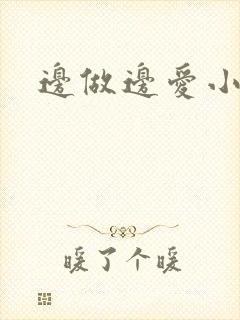 邊做邊愛小
暖了个暖